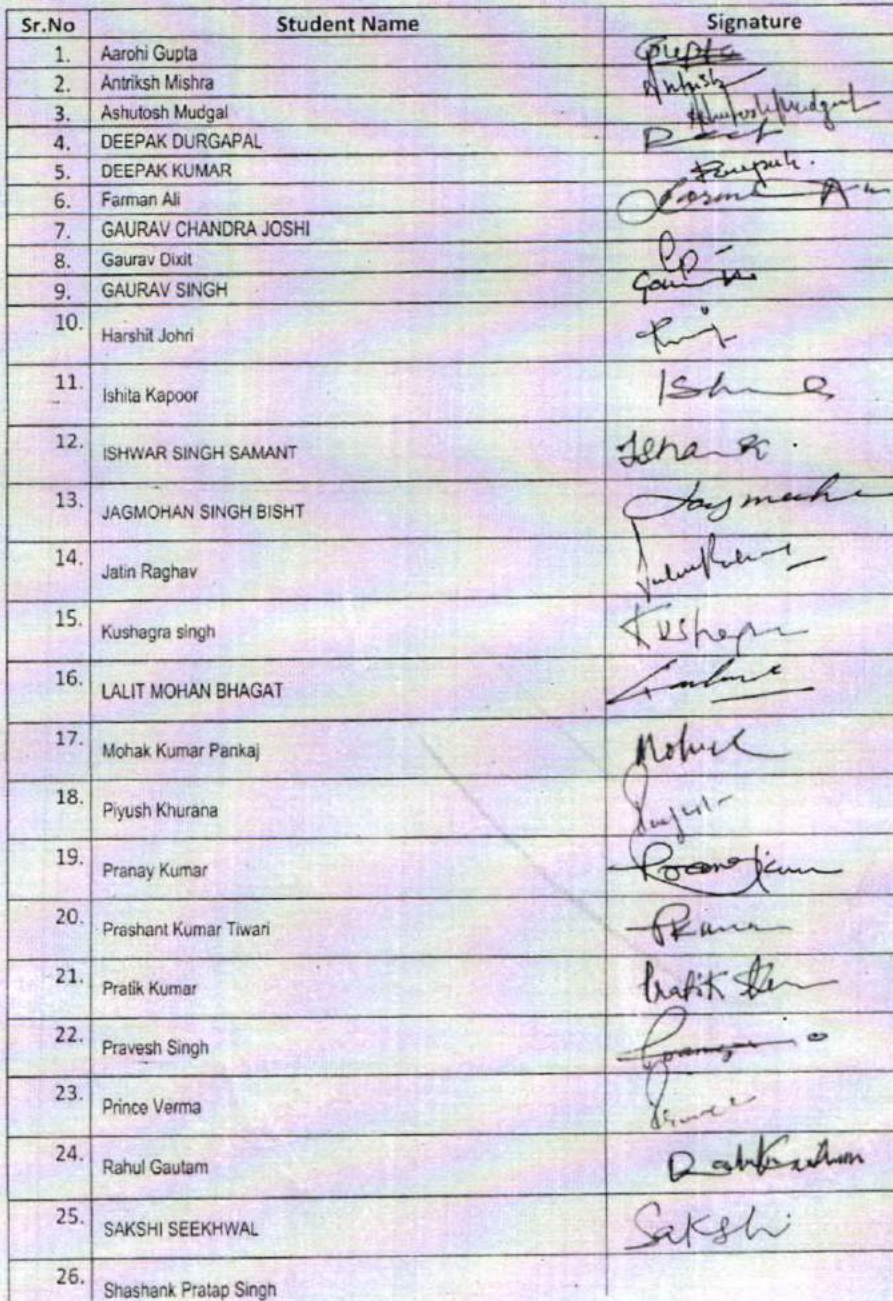 Sr.No Student Name Signature
1. Aarohi Gupta Gupta
2. Antriksh Mishra
3. Ashutosh Mudgal Ashutosh Mudgal
4. DEEPAK DURGAPAL
5. DEEPAK KUMAR
6. Farman Ali
7. GAURAV CHANDRA JOSHI
8. Gaurav Dixit
9. GAURAV SINGH
10. Harshit Johri
11. Ishita Kapoor
12. ISHWAR SINGH SAMANT
13. JAGMOHAN SINGH BISHT
14. Jatin Raghav
15. Kushagra singh
16. LALIT MOHAN BHAGAT
17. Mohak Kumar Pankaj
18. Piyush Khurana
19. Pranay Kumar
20. Prashant Kumar Tiwari
21. Pratik Kumar Pratik
22. Pravesh Singh
23. Prince Verma
24. Rahul Gautam
25. SAKSHI SEEKHWAL Sakshi
26. Shashank Pratap Singh